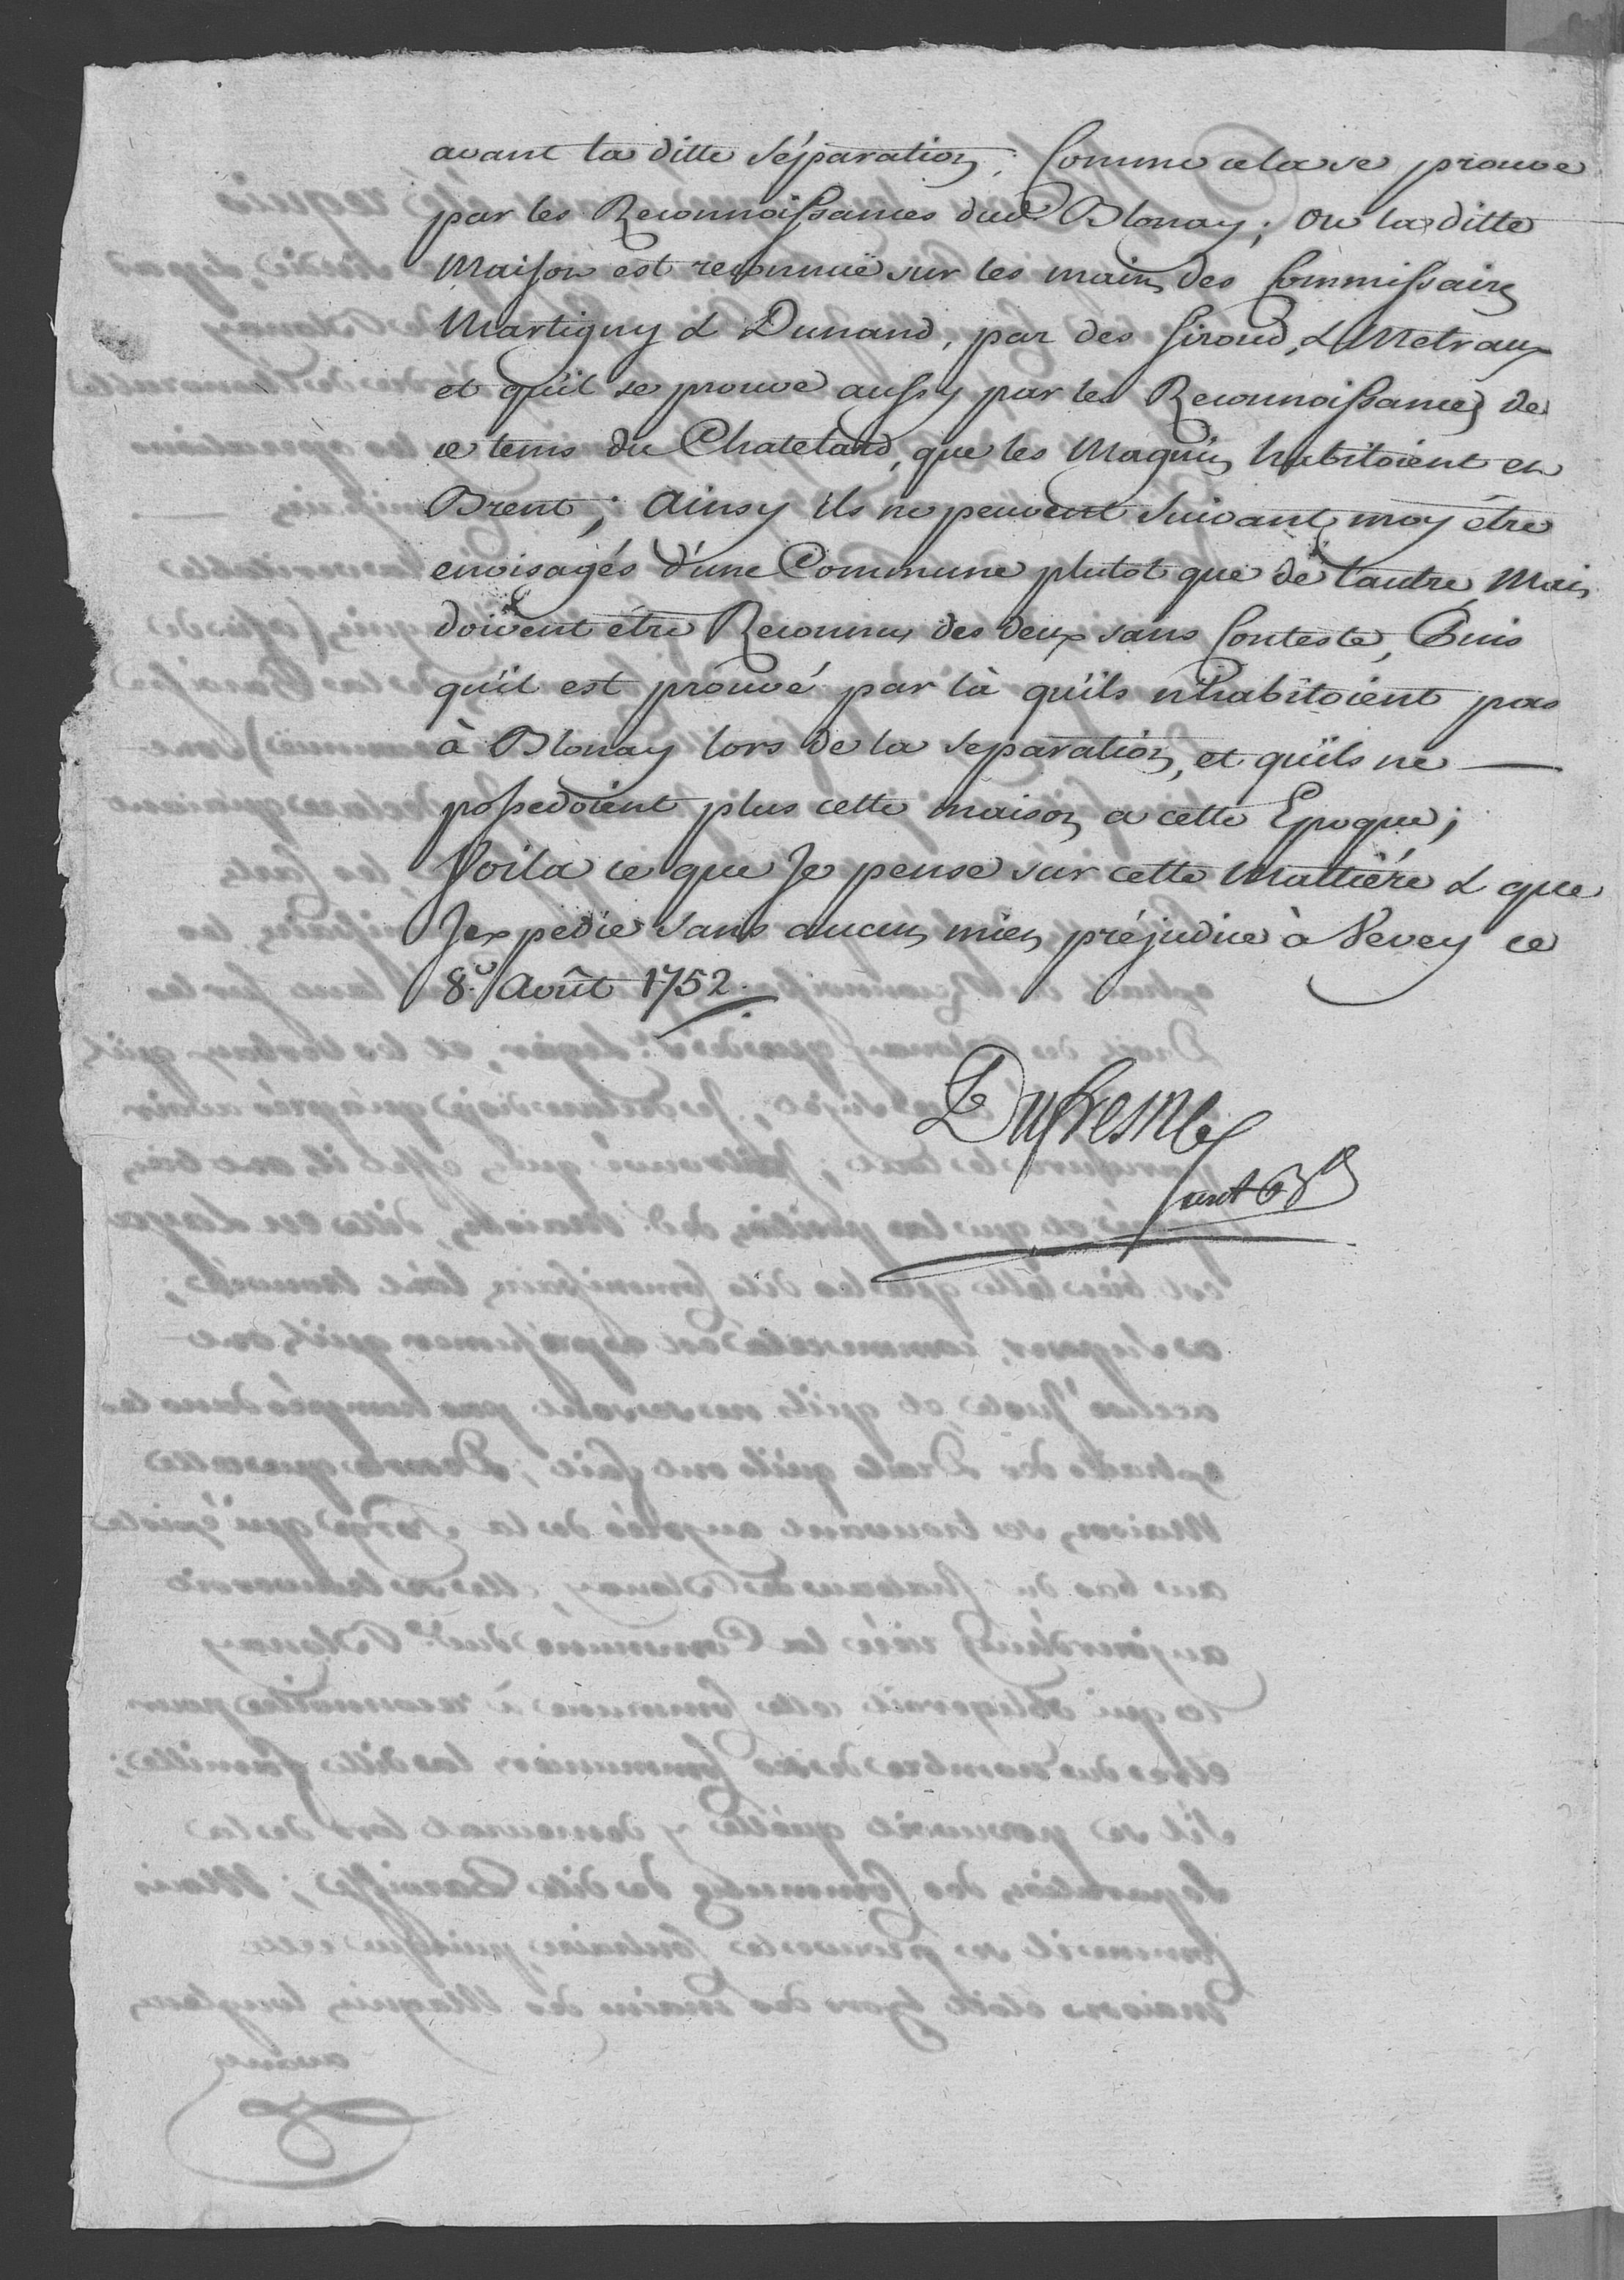 avant la ditte séparation; Comme cela se prouve
par les Reconnoissances dud Blonay; ou la ditte
Maison est reconnuë sur les mains des Commissaires
Martigny & Dunand, par des Giroud, & Metraux
et qu'il se prouve aussy par les Reconnoissances de
ce tems du Chatelard, que les Maguin habitoient en
Brent; Ainsy ils ne peuvent suivant moy être
envisagés d'une Commune plutot que de l'autre, Mais
doivent être Reconnus des deux sans Conteste, Puis
qu'il est prouvé par là qu'ils n'habitoient pas
à Blonay lors de la separation, et qu'ils ne —
possedoient plus cette maison a cette Epoque;
Voila ce que Je pense sur cette Mattiére & que
J'expedie sans aucun mien préjudice à Vevey ce
8.e Août 1752.
Dufresne